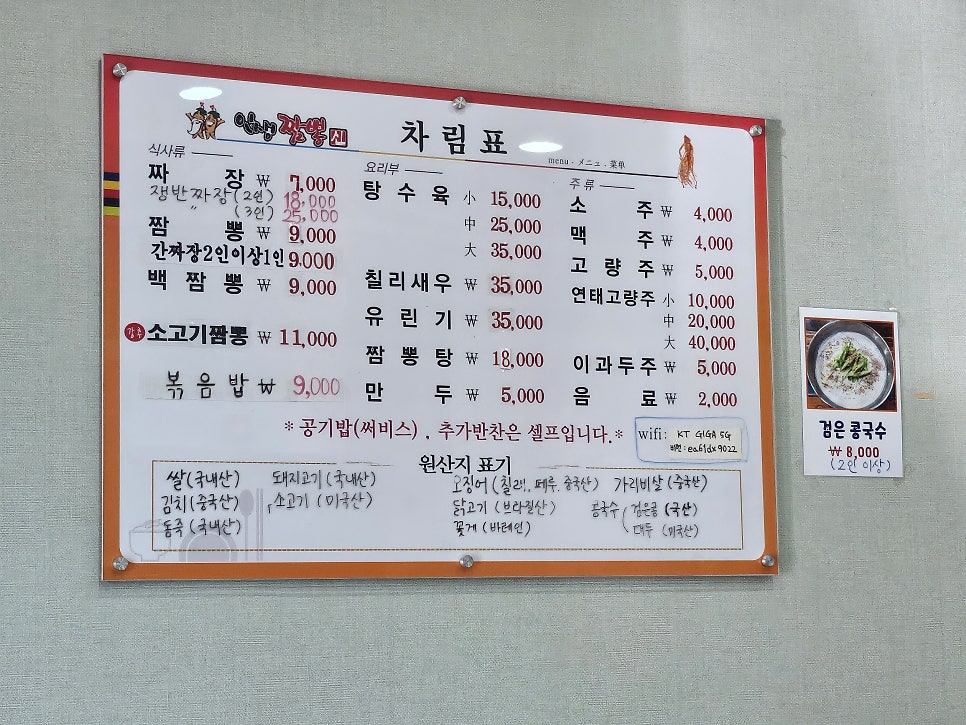 인생 짬뽕 신
차림표
menu . メニュー . 菜单
식사류
짜장 ₩ 7,000
쟁반짜장 (2인) 18,000
〃 (3인) 25,000
짬뽕 ₩ 9,000
간짜장2인이상1인 9,000
백짬뽕 ₩ 9,000
강추 소고기짬뽕 ₩ 11,000
볶음밥 ₩ 9,000
요리부
탕수육 小 15,000
中 25,000
大 35,000
칠리새우 ₩ 35,000
유린기 ₩ 35,000
짬뽕탕 ₩ 18,000
만두 ₩ 5,000
주류
소주 ₩ 4,000
맥주 ₩ 4,000
고량주 ₩ 5,000
연태고량주 小 10,000
中 20,000
大 40,000
이과두주 ₩ 5,000
음료 ₩ 2,000
* 공기밥(써비스) . 추가반찬은 셀프입니다.*
wifi: KT GIGA 5G
비번: ea61dx9022
원산지 표기
쌀(국내산)
김치(중국산)
동죽(국내산)
돼지고기(국내산)
소고기(미국산)
오징어(칠레, 페루, 중국산)
닭고기(브라질산)
꽃게(바레인)
가리비살(중국산)
콩국수 검은콩(국산)
대두 (미국산)
검은 콩국수
₩ 8,000
(2인 이상)